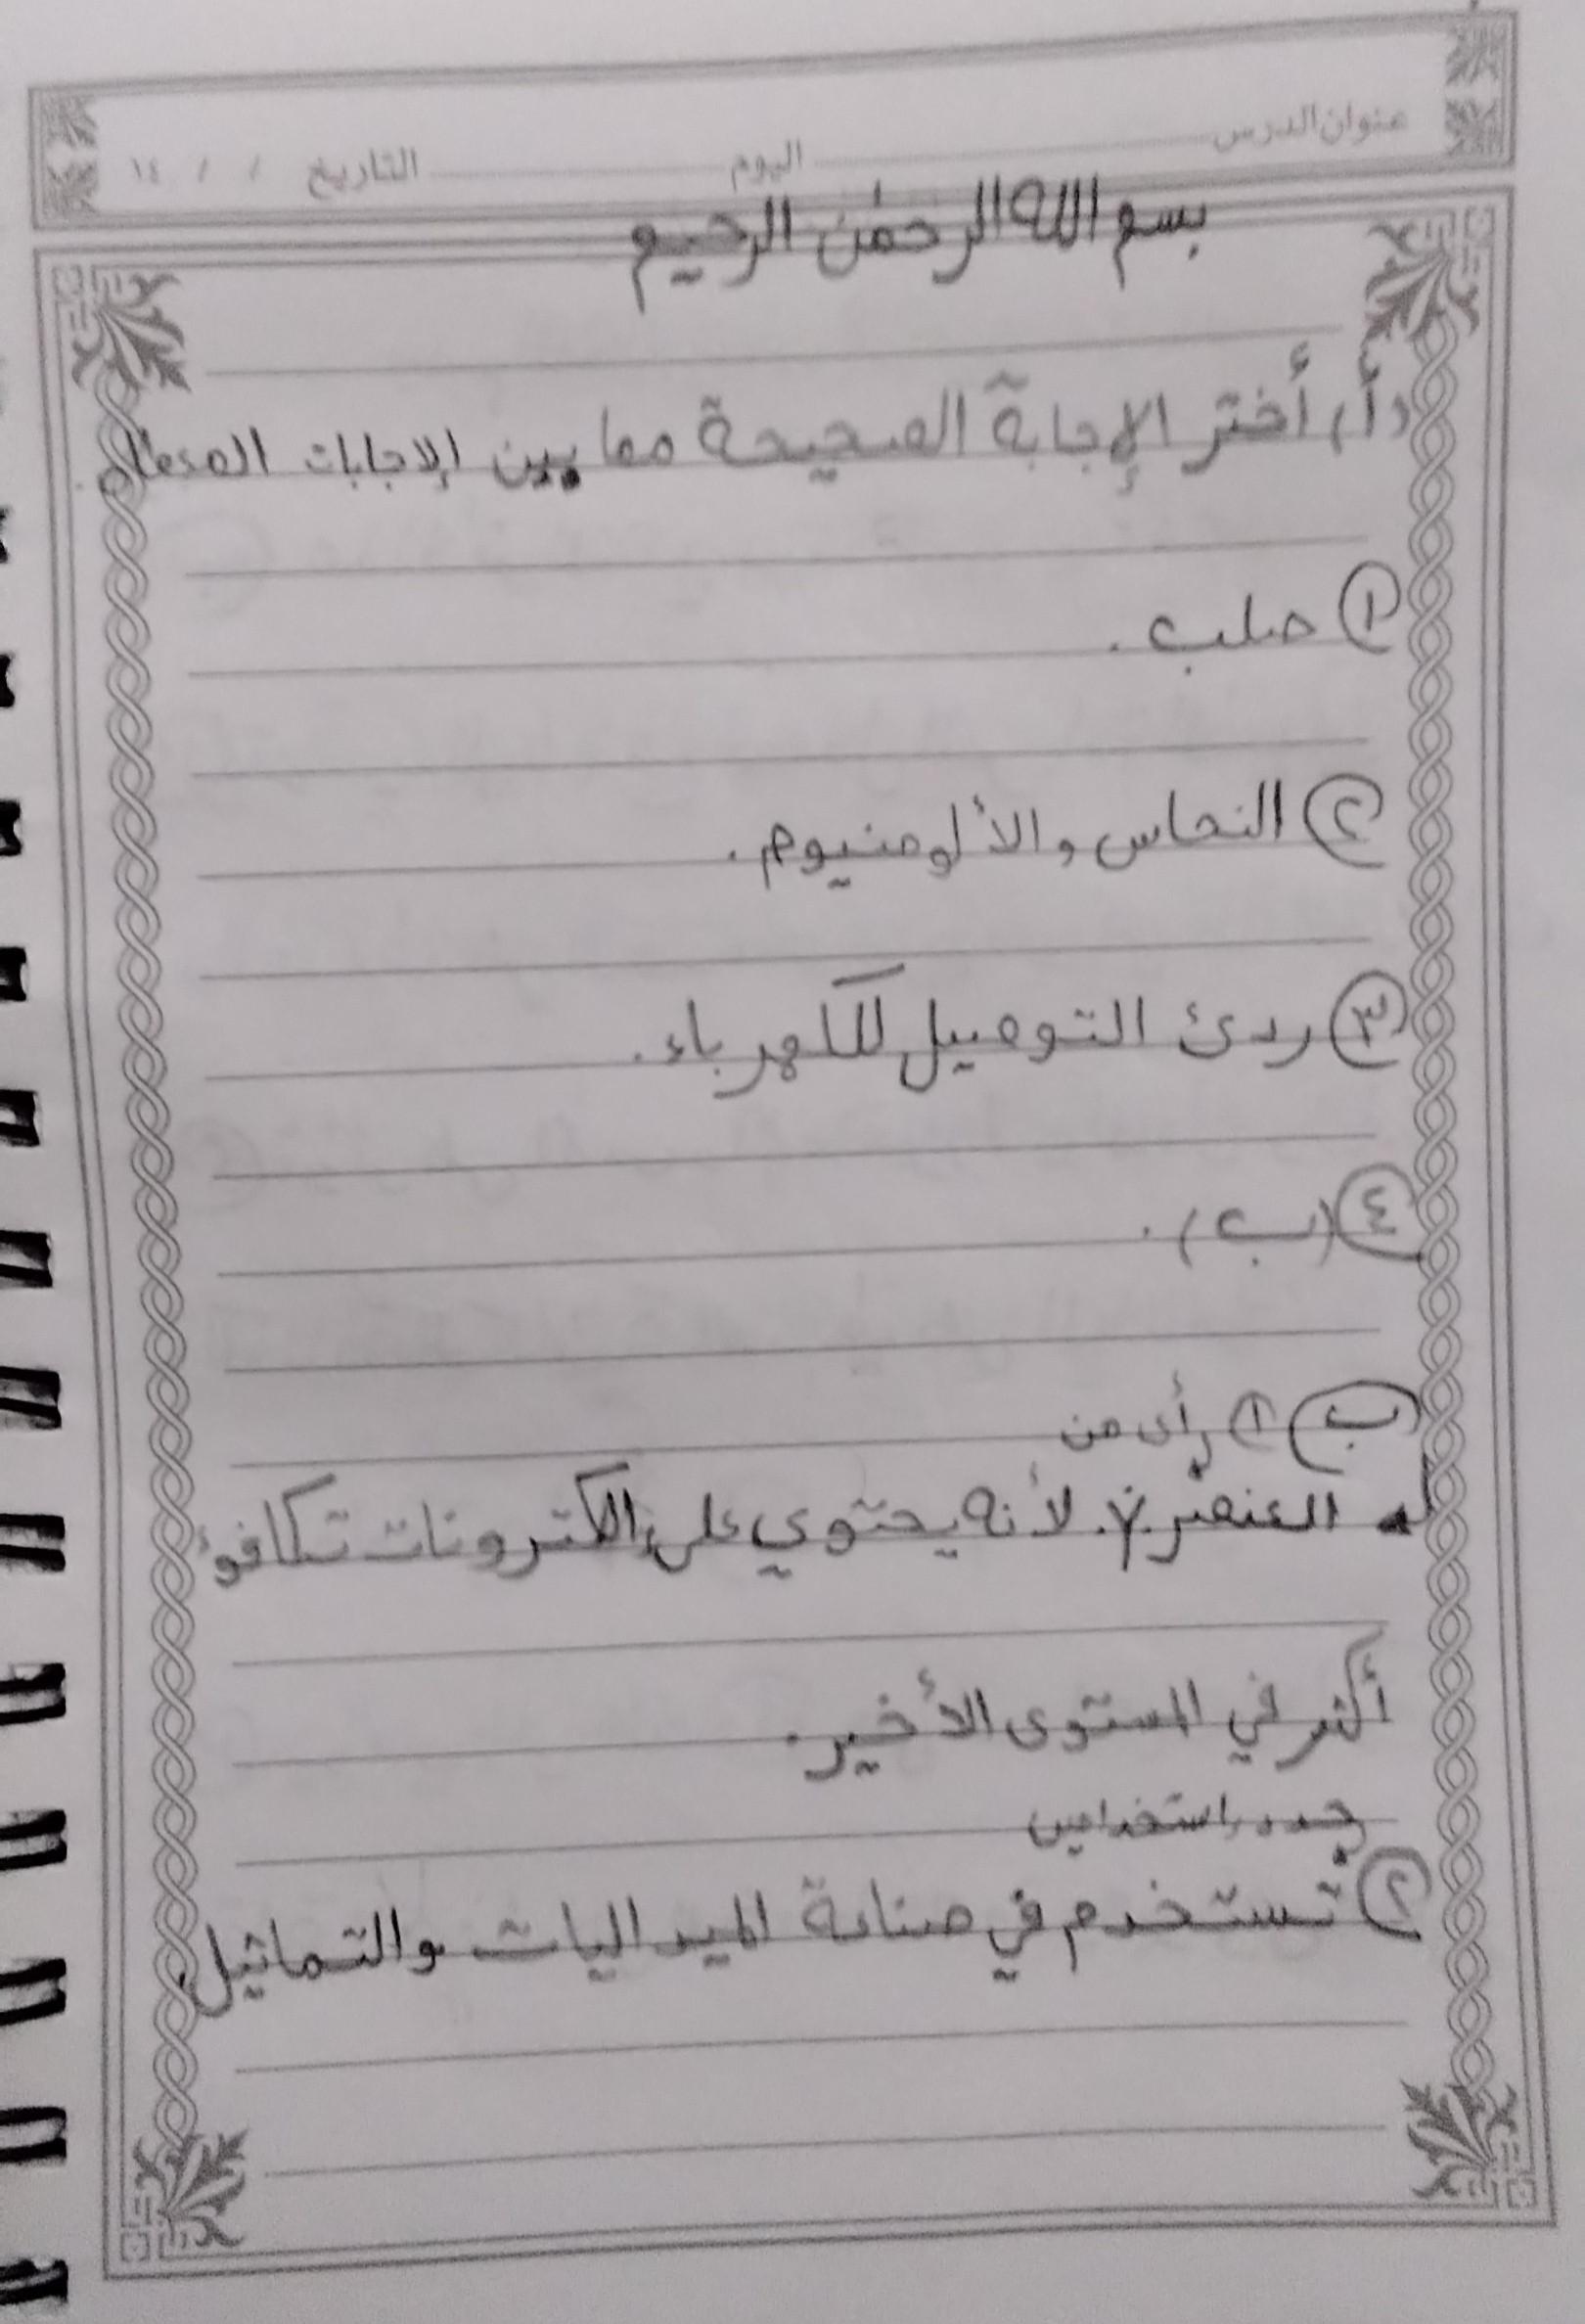 عنوان الدرس اليوم التاريخ / / ١٤
بسم الله الرحمٰن الرحيم
(أ) أختر الإجابة الصحيحة مما بين الإجابات
١ صلب.
٢ النحاس والألومنيوم.
٣ ردئ التوصيل للكهرباء.
٤ (ب).
(ب) ١ أى من
العنصر Y. لأنه يحتوي على إلكترونات تكافؤ
أكثر في المستوى الأخير.
حدد استخدامين
٢ تستخدم في صناعة الميداليات والتماثيل.